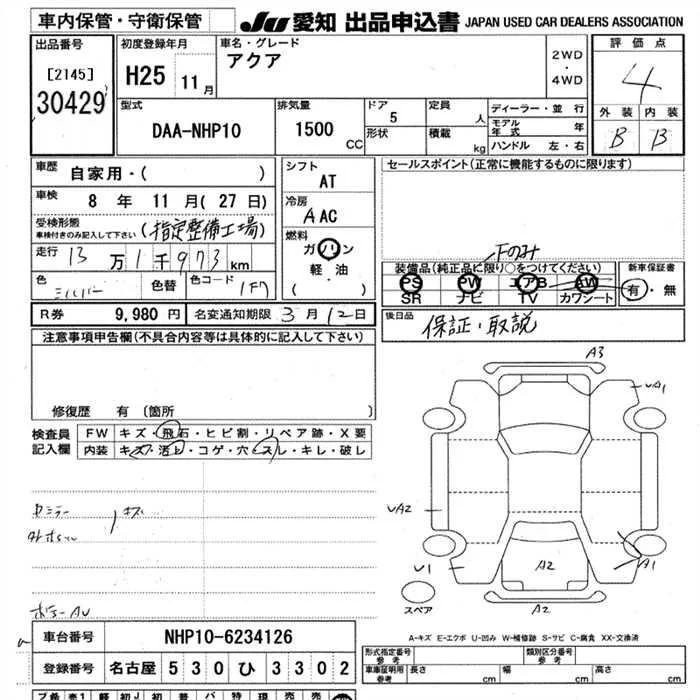 車内保管・守衛保管
JU 愛知 出品申込書 JAPAN USED CAR DEALERS ASSOCIATION
出品番号
[2145]
30429
初度登録年月
H25 11月
車名・グレード
アクア
2WD
・
4WD
評価点
4
外装 内装
B B
型式
DAA-NHP10
排気量
1500 CC
ドア 5
形状
定員 人
積載 kg
ディーラー・並行
モデル年式 年
ハンドル 左・右
車歴
自家用・( )
車検
8 年 11 月 (27日)
受検形態
車検付きのみ記入して下さい
(指定整備工場)
走行
13万1千973km
色
シルバー
色替
色コード
1F7
シフト
AT
冷房
AAC
燃料
ガソリン
軽油
( )
セールスポイント(正常に機能するものに限ります)
Fのみ
装備品(純正品に限り○をつけてください)
PS PW エアB AW
SR ナビ TV カワシート
新車保証書
有・無
後日品
保証・取説
R券 9,980円 名変通知期限 3月12日
注意事項申告欄(不具合内容等は具体的に記入して下さい)
修復歴 有(箇所 )
検査員
記入欄
FW キズ・飛石・ヒビ割・リペア跡・X要
内装 キズ・汚れ・コゲ・穴・スレ・キレ・破し
キズ
A3
UA1
UA2
U1
A2
A1
A2
スペア
A-キズ E-エクボ U-凹み W-補修跡 S-サビ C-腐食 XX-交換済
車台番号 NHP10-6234126
登録番号 名古屋 530 ひ 3302
形式指定番号
参考
類別区分番号
参考
車庫証明用
参考
長さ cm 幅 cm 高さ cm